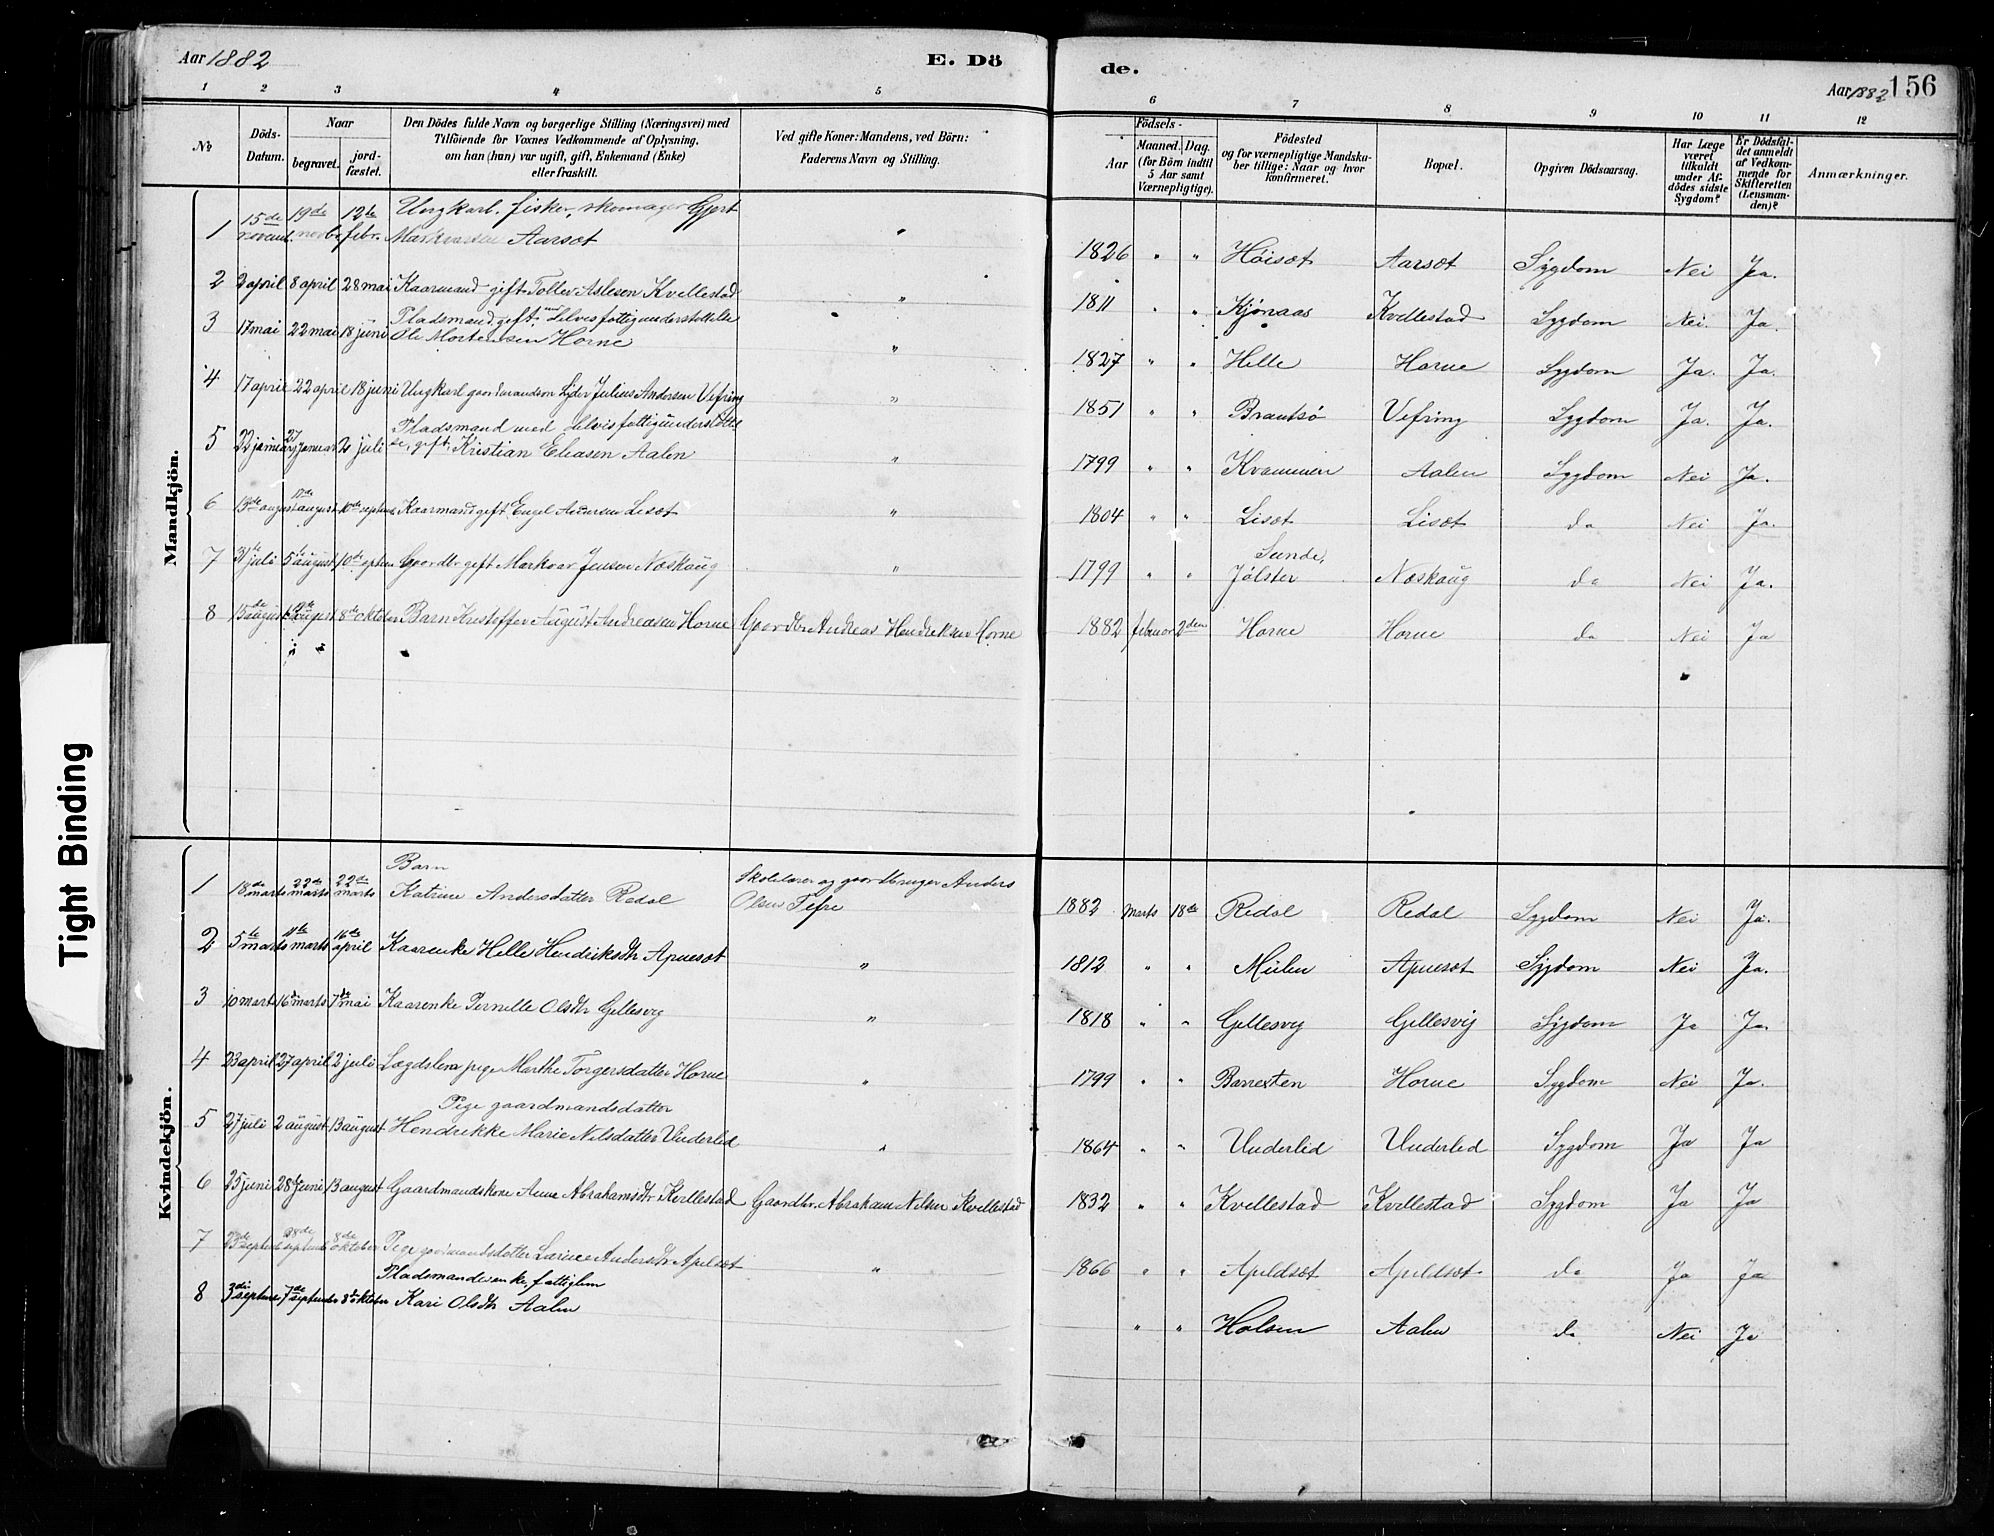 Aar 1882
E. Dö
de.
Aar 1882 156
1 2 3 4 5 6 7 8 9 10 11 12
No
Döds-Datum.
Naar
begravet.
jord-fæstet.
Den Dödes fulde Navn og borgerlige Stilling (Næringsvei) med
Tilföiende for Voxnes Vedkommende af Oplysning,
om han (hun) var ugift, gift, Enkemand (Enke)
eller fraskilt.
Ved gifte Koner: Mandens, ved Börn:
Faderens Navn og Stilling.
Födsels-
Aar
Maaned. Dag.
(for Börn indtil
5 Aar samt
Værnepligtige).
Födested
og for værnepligtige Mandska-
ber tillige: Naar og hvor
konfirmeret.
Bopæl.
Opgiven Dödsaarsag.
Har Læge
været
tilkaldt
under Af-
dödes sidste
Sygdom?
Er Dödsfal-
det anmeldt
af Vedkom-
mende for
Skifteretten
(Lensman-
den)?
Anmærkninger.
Mandkjön.
1 15de novemb. 19de novbr. 12te febr. Ungkarl, fisker, skomager Gjert
Markvarsen Aarsæt " 1826 " " Höisæt Aarsæt Sygdom Nei Ja.
2 2 april 8 april 28 mai Kaarmand gift Tollev Aslesen Kvellestad " 1811 " " Kjønaas Kvellestad Sygdom Nei. Ja.
3 17 mai 22 mai 18 juni Pladsmand, gift, med delvis fattigunderstøttelse
Ole Mortensen Horne " 1827 " " Helle Horne Sygdom Ja. Ja.
4 17 april 22 april 18 juni Ungkarl gaardmandsøn Lyder Julius Andersen Vefring " 1851 " " Brantsø Vefring Sygdom Ja. Ja.
5 22 januar 27 januar 2 juli Pladsmand med delvis fattigunderstøttel-
se, gift, Kristian Eliasen Aalen " 1799 " " Kvammen Aalen Sygdom Nei Ja.
6 13de august 17de august 10de septemb. Kaarmand gift Engel Andersen Lisæt " 1804 " " Lisæt Lisæt do Nei Ja.
7 31te juli 5te august 10de septem Gaardbr gift Markvar Jensen Næskaug " 1799 " " Sunde,
Jølster Næskaug do Nei Ja.
8 15de august august 8de oktober Barn Kristoffer August Andreasen Horne Gaardbr Andreas Hendriksen Horne 1882 februar 2den Horne Horne do Nei Ja
Kvindekjön.
1 18de marts 22de marts 22de marts Barn
Katrine Andersdatter Redal Skolelærer og gaardbruger Anders
Olsen Tefre 1882 marts 18de Redal Redal Sygdom Nei Ja.
2 5te marts 11te marts 16de april Kaarenke Helle Hendriksdtr Apnesæt " 1812 " " Mulen Apnesæt Sygdom Nei Ja.
3 10 marts 16 marts 7de mai Kaarenke Pernille Olsdtr Gellesvig " 1818 " " Gellesvig Gellesvig Sygdom Ja Ja.
4 23 april 27 april 2 juli Lægdslem pige Marthe Torgersdatter Horne " 1799 " " Barresten Horne Sygdom Nei Ja.
5 27 juli 2 august 13 august Pige gaardmandsdatter
Hendrikke Marie Nilsdatter Underlid " 1864 " " Underlid Underlid Sygdom Ja Ja
6 25 juni 28 juni 13 august Gaardmandskone Anne Abrahamsdtr Kvellestad Gaardbr. Abraham Nilsen Kvellestad 1832 " " Kvellestad Kvellestad Sygdom Ja Ja
7 23de septemb 28de septemb 8de oktober Pige gaardmandsdatter Larine Andersdtr Apeldsæt " 1866 " " Apeldsæt Apeldsæt do Ja Ja
8 3die septemb 7de september 8de oktober Pladsmandsenke, fattiglem
Kari Olsdtr Aalen " " Holsen Aalen do Nei Ja
Tight Binding